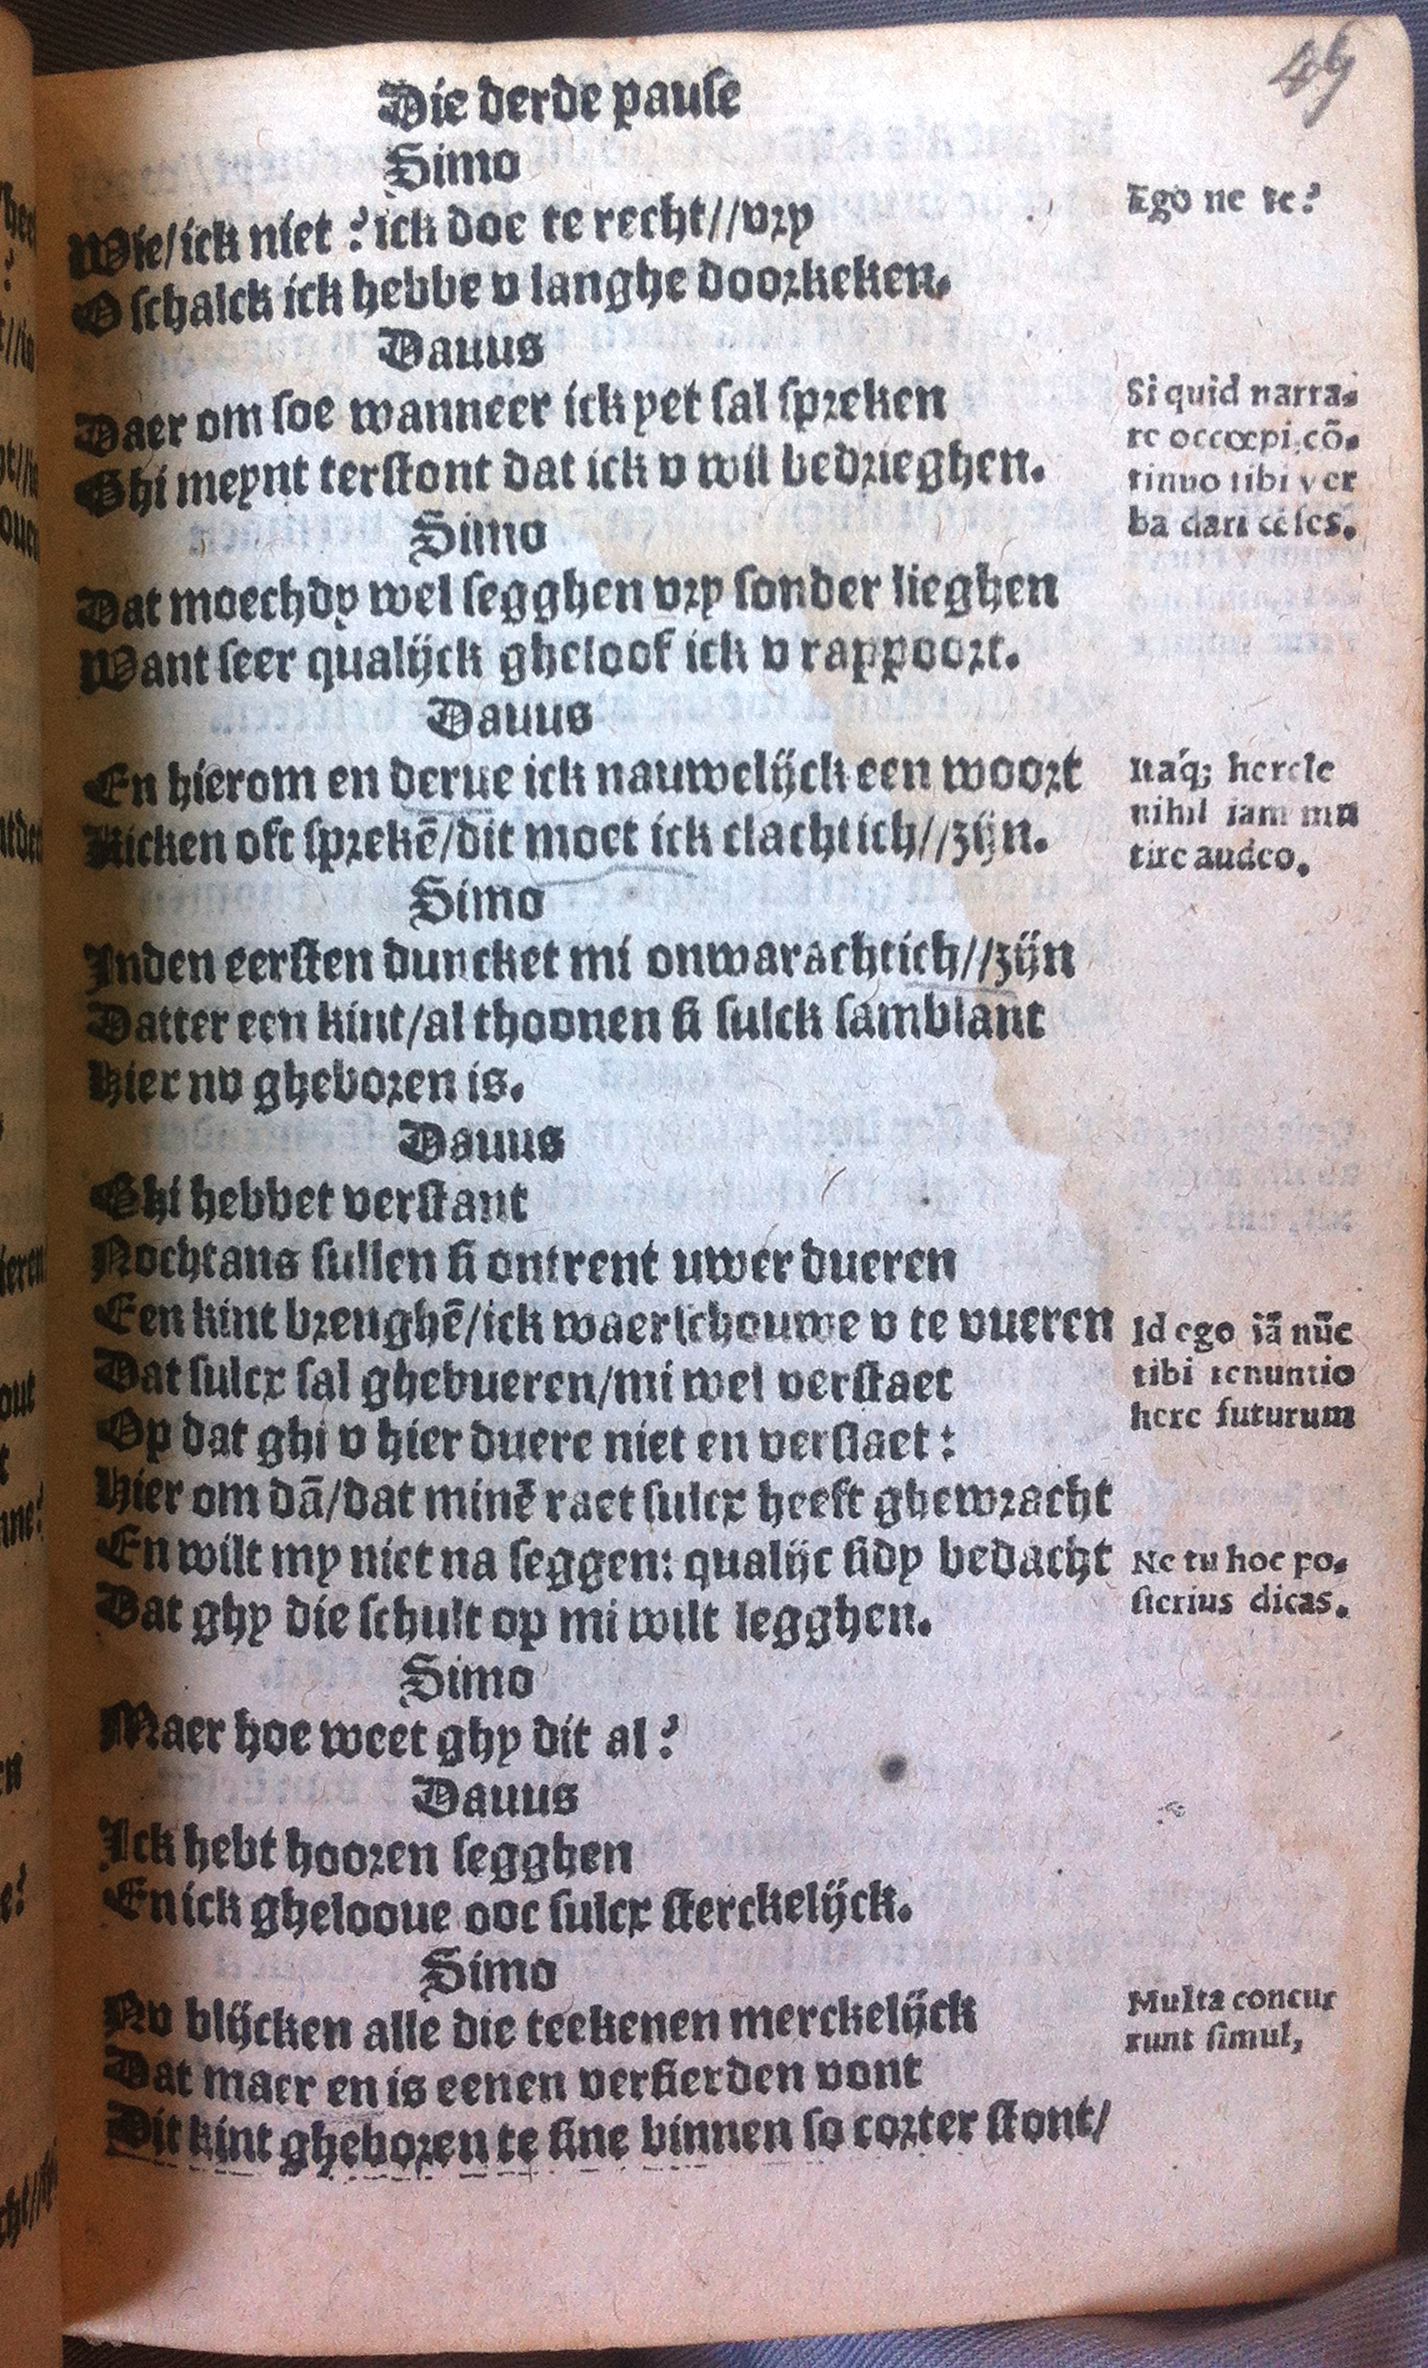 49
Die derde pause
Simo
Wie/ick niet? ick doe te recht//vry
Ego ne te?
O schalck ick hebbe v langhe doorkeken.
Dauus
Daer om soe wanneer ick yet sal spreken
Ghi meynt terstont dat ick v wil bedrieghen.
Si quid narra-
re occœpi, cõ-
tinuo tibi ver
ba dari cẽses.
Simo
Dat moechdy wel segghen vry sonder lieghen
Want seer qualijck gheloof ick v rappoort.
Dauus
En hierom en derue ick nauwelijck een woort
Kicken oft sprekẽ/dit moet ick clachtich//zijn.
Itaq; hercle
nihil iam mu
tire audeo.
Simo
Inden eersten duncket mi onwarachtich//zijn
Datter een kint/al thoonen si sulck samblant
Hier nv gheboren is.
Dauus
Ghi hebbet verstant
Nochtans sullen si ontrent uwer dueren
Een kint brenghẽ/ick waerschouwe v te vueren
Dat sulcx sal ghebueren/mi wel verstaet
Op dat ghi v hier duere niet en verslaet:
Id ego iã nũc
tibi renuntio
here futurum
Hier om dã/dat minẽ raet sulcx heeft ghewracht
En wilt my niet na seggen: qualijc sidy bedacht
Dat ghy die schult op mi wilt legghen.
Ne tu hoc po-
sterius dicas.
Simo
Maer hoe weet ghy dit al?
Dauus
Ick hebt hooren segghen
En ick ghelooue ooc sulcx sterckelijck.
Simo
Nv blijcken alle die teekenen merckelijck
Dat maer en is eenen versierden vont
Dit kint gheboren te sine binnen so corter stont/
Multa concur
runt simul,